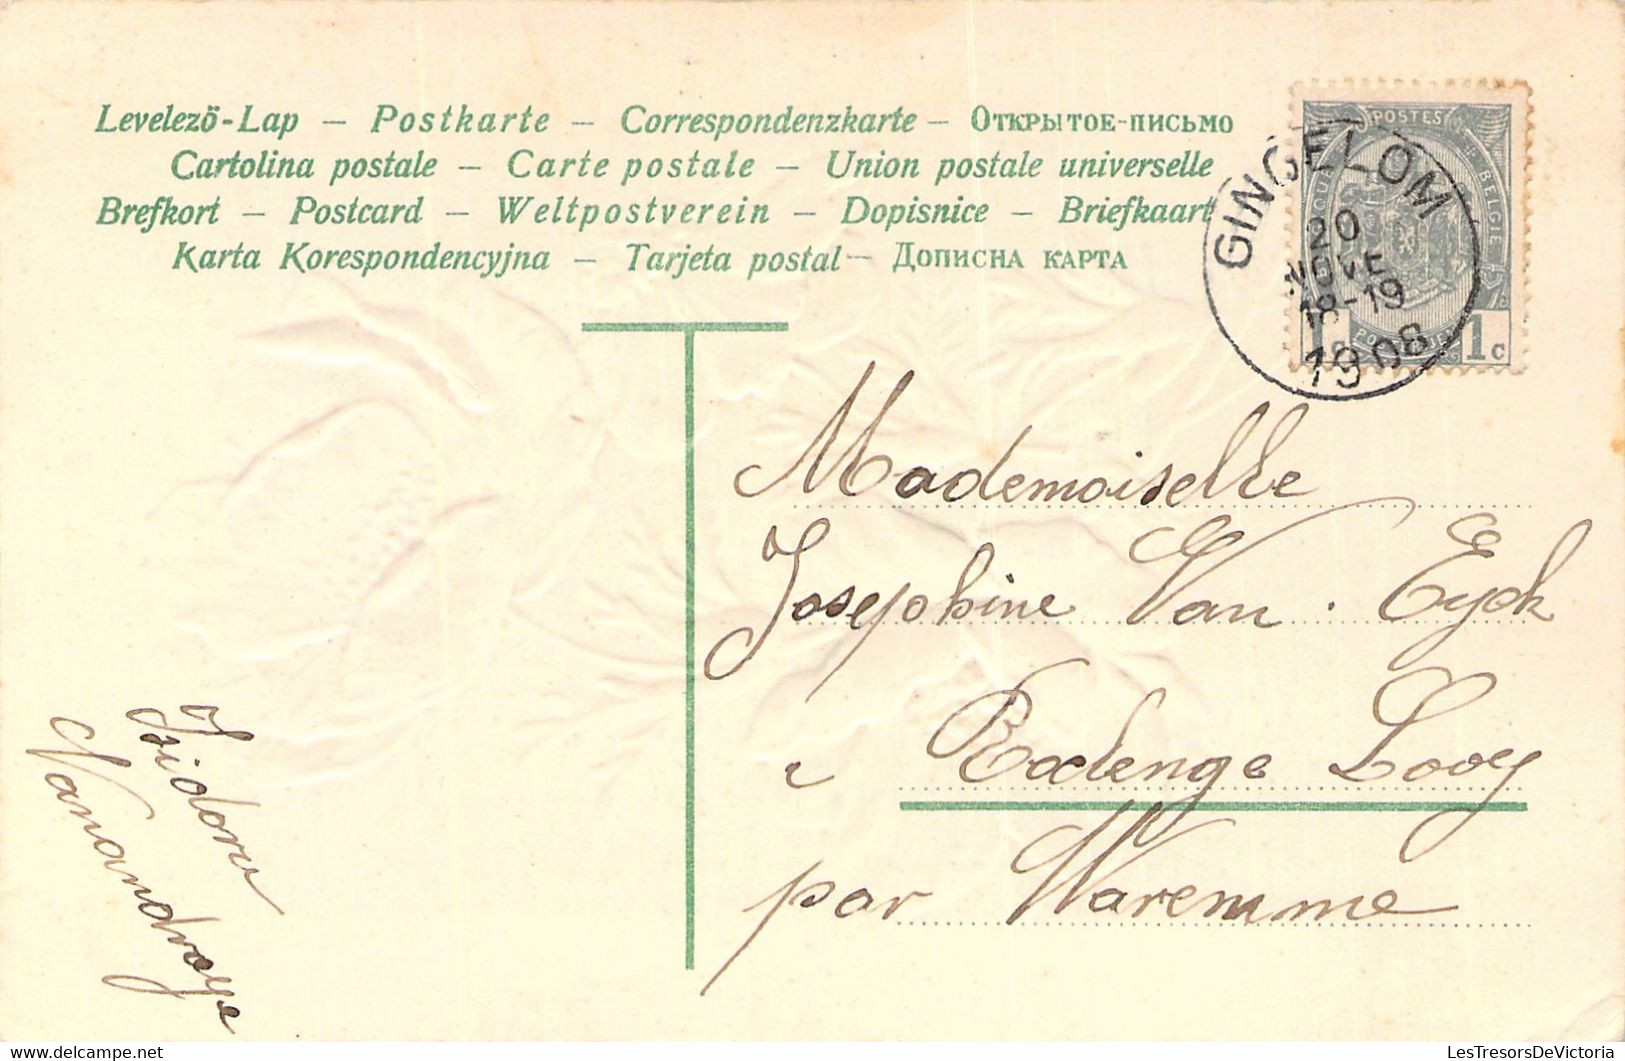 Levelező-Lap — Postkarte — Correspondenzkarte — Открытое-письмо
Cartolina postale — Carte postale — Union postale universelle
Brefkort — Postcard — Weltpostverein — Dopisnice — Briefkaart
Karta Korespondencyjna — Tarjeta postal — Дописна карта
POSTES
BELGIE
1c 1c
GINGELOM
20
NOVE
18-19
1908
Mademoiselle
Josephine Van Eyck
à Looy
par Waremme
Isidore
LesTresorsDeVictoria